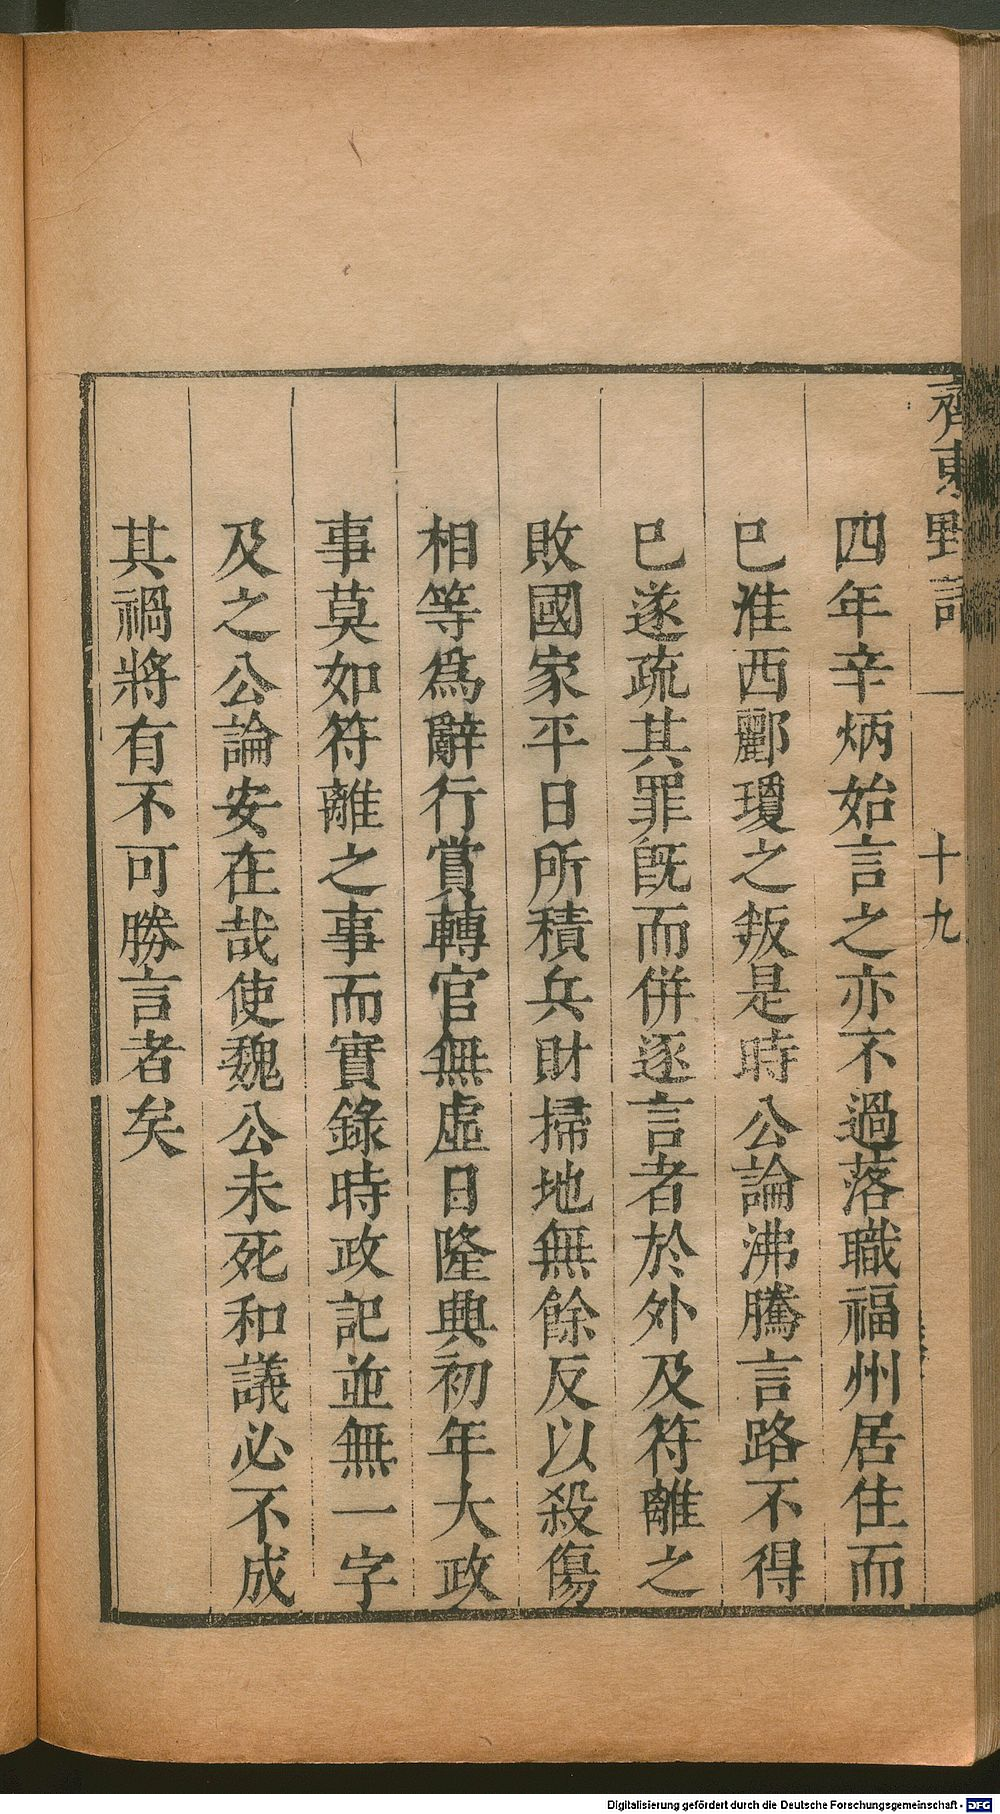 齊東野語 一 十九
四年辛炳始言之亦不過落職福州居住而
巳淮西酈瓊之叛是時公論沸騰言路不得
巳遂疏其罪旣而併逐言者於外及符離之
敗國家平日所積兵財掃地無餘反以殺傷
相等爲辭行賞轉官無虛日隆興初年大政
事莫如符離之事而實錄時政記並無一字
及之公論安在哉使魏公未死和議必不成
其禍將有不可勝言者矣
Digitalisierung gefördert durch die Deutsche Forschungsgemeinschaft - DFG